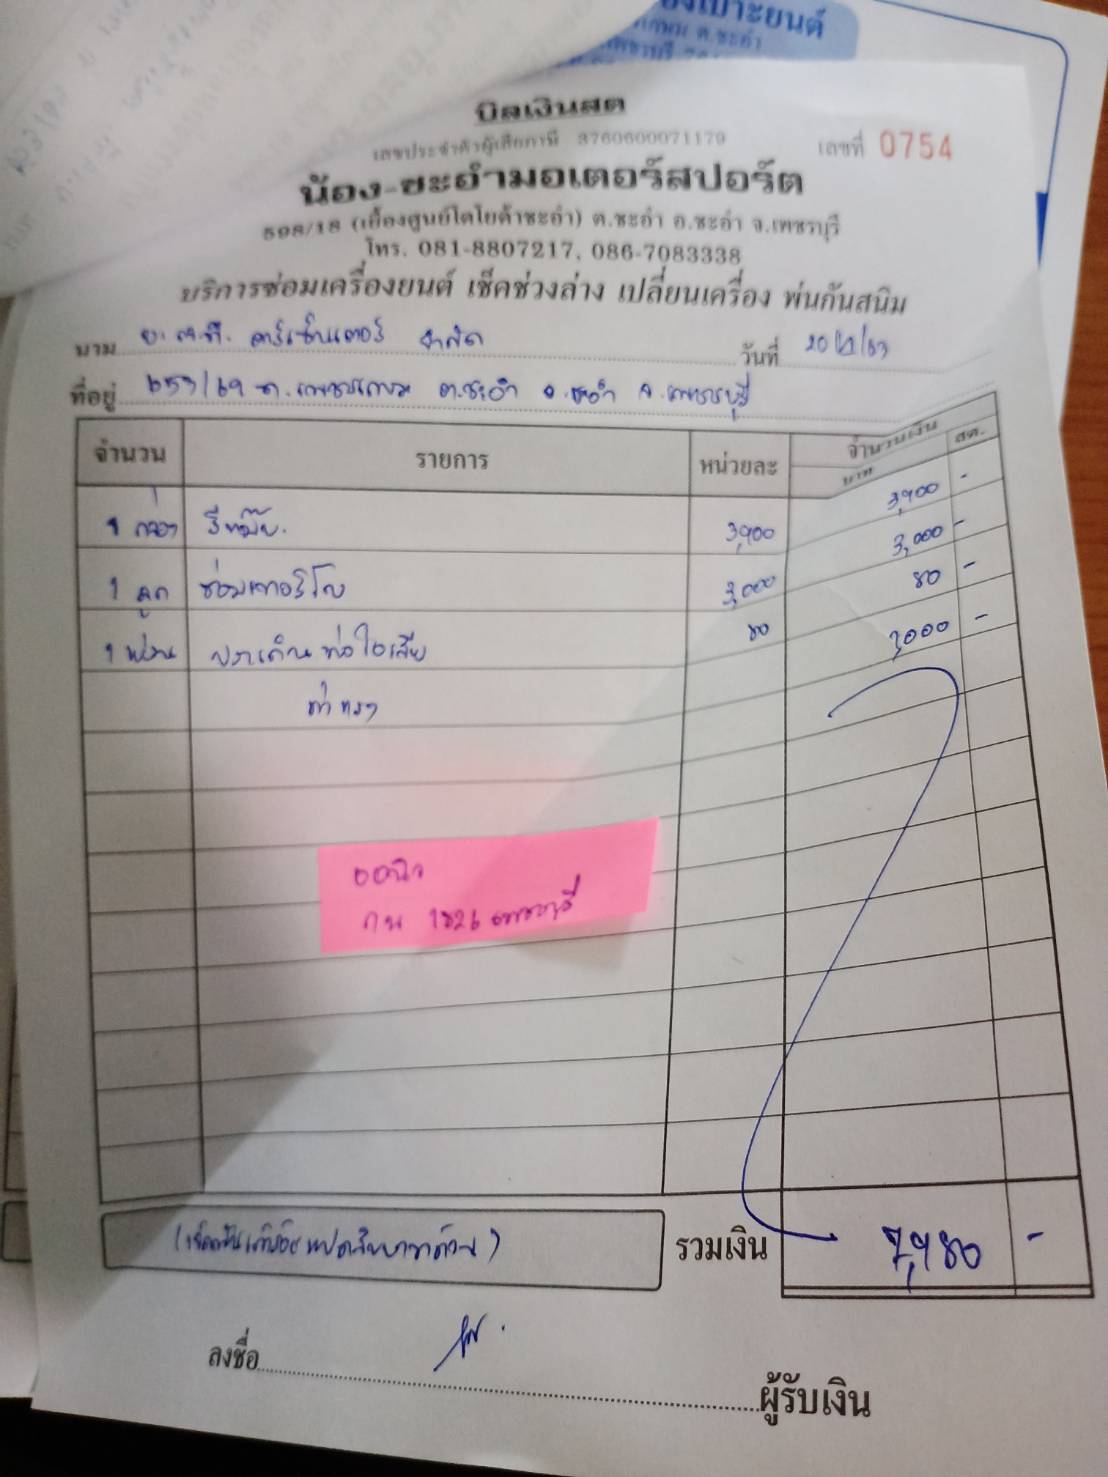 องเบาะยนต์
บิลเงินสด
เลขประจำตัวผู้เสียภาษี 3760600071179
เลขที่ 0754
น้อง-ชะอำมอเตอร์สปอร์ต
598/18 (เยื้องศูนย์โตโยต้าชะอำ) ต.ชะอำ อ.ชะอำ จ.เพชรบุรี
โทร. 081-8807217, 086-7083338
บริการซ่อมเครื่องยนต์ เช็คช่วงล่าง เปลี่ยนเครื่อง พ่นกันสนิม
นาม คาร์เซ็นเตอร์ จำกัด วันที่
ที่อยู่ ถ.เพชรเกษม ต.ชะอำ อ.ชะอำ จ.เพชรบุรี
จำนวน รายการ หน่วยละ จำนวนเงิน
บาท สต.
1 กล่อง 3,900 3,900 -
1 ลูก ซ่อมเทอร์โบ 3,000 3,000 -
1 แผ่น ปะเก็นท่อไอเสีย 80 80 -
ค่าแรง 1,000 -
กน 1826 เพชรบุรี
รวมเงิน 7,980 -
ลงชื่อ ผู้รับเงิน